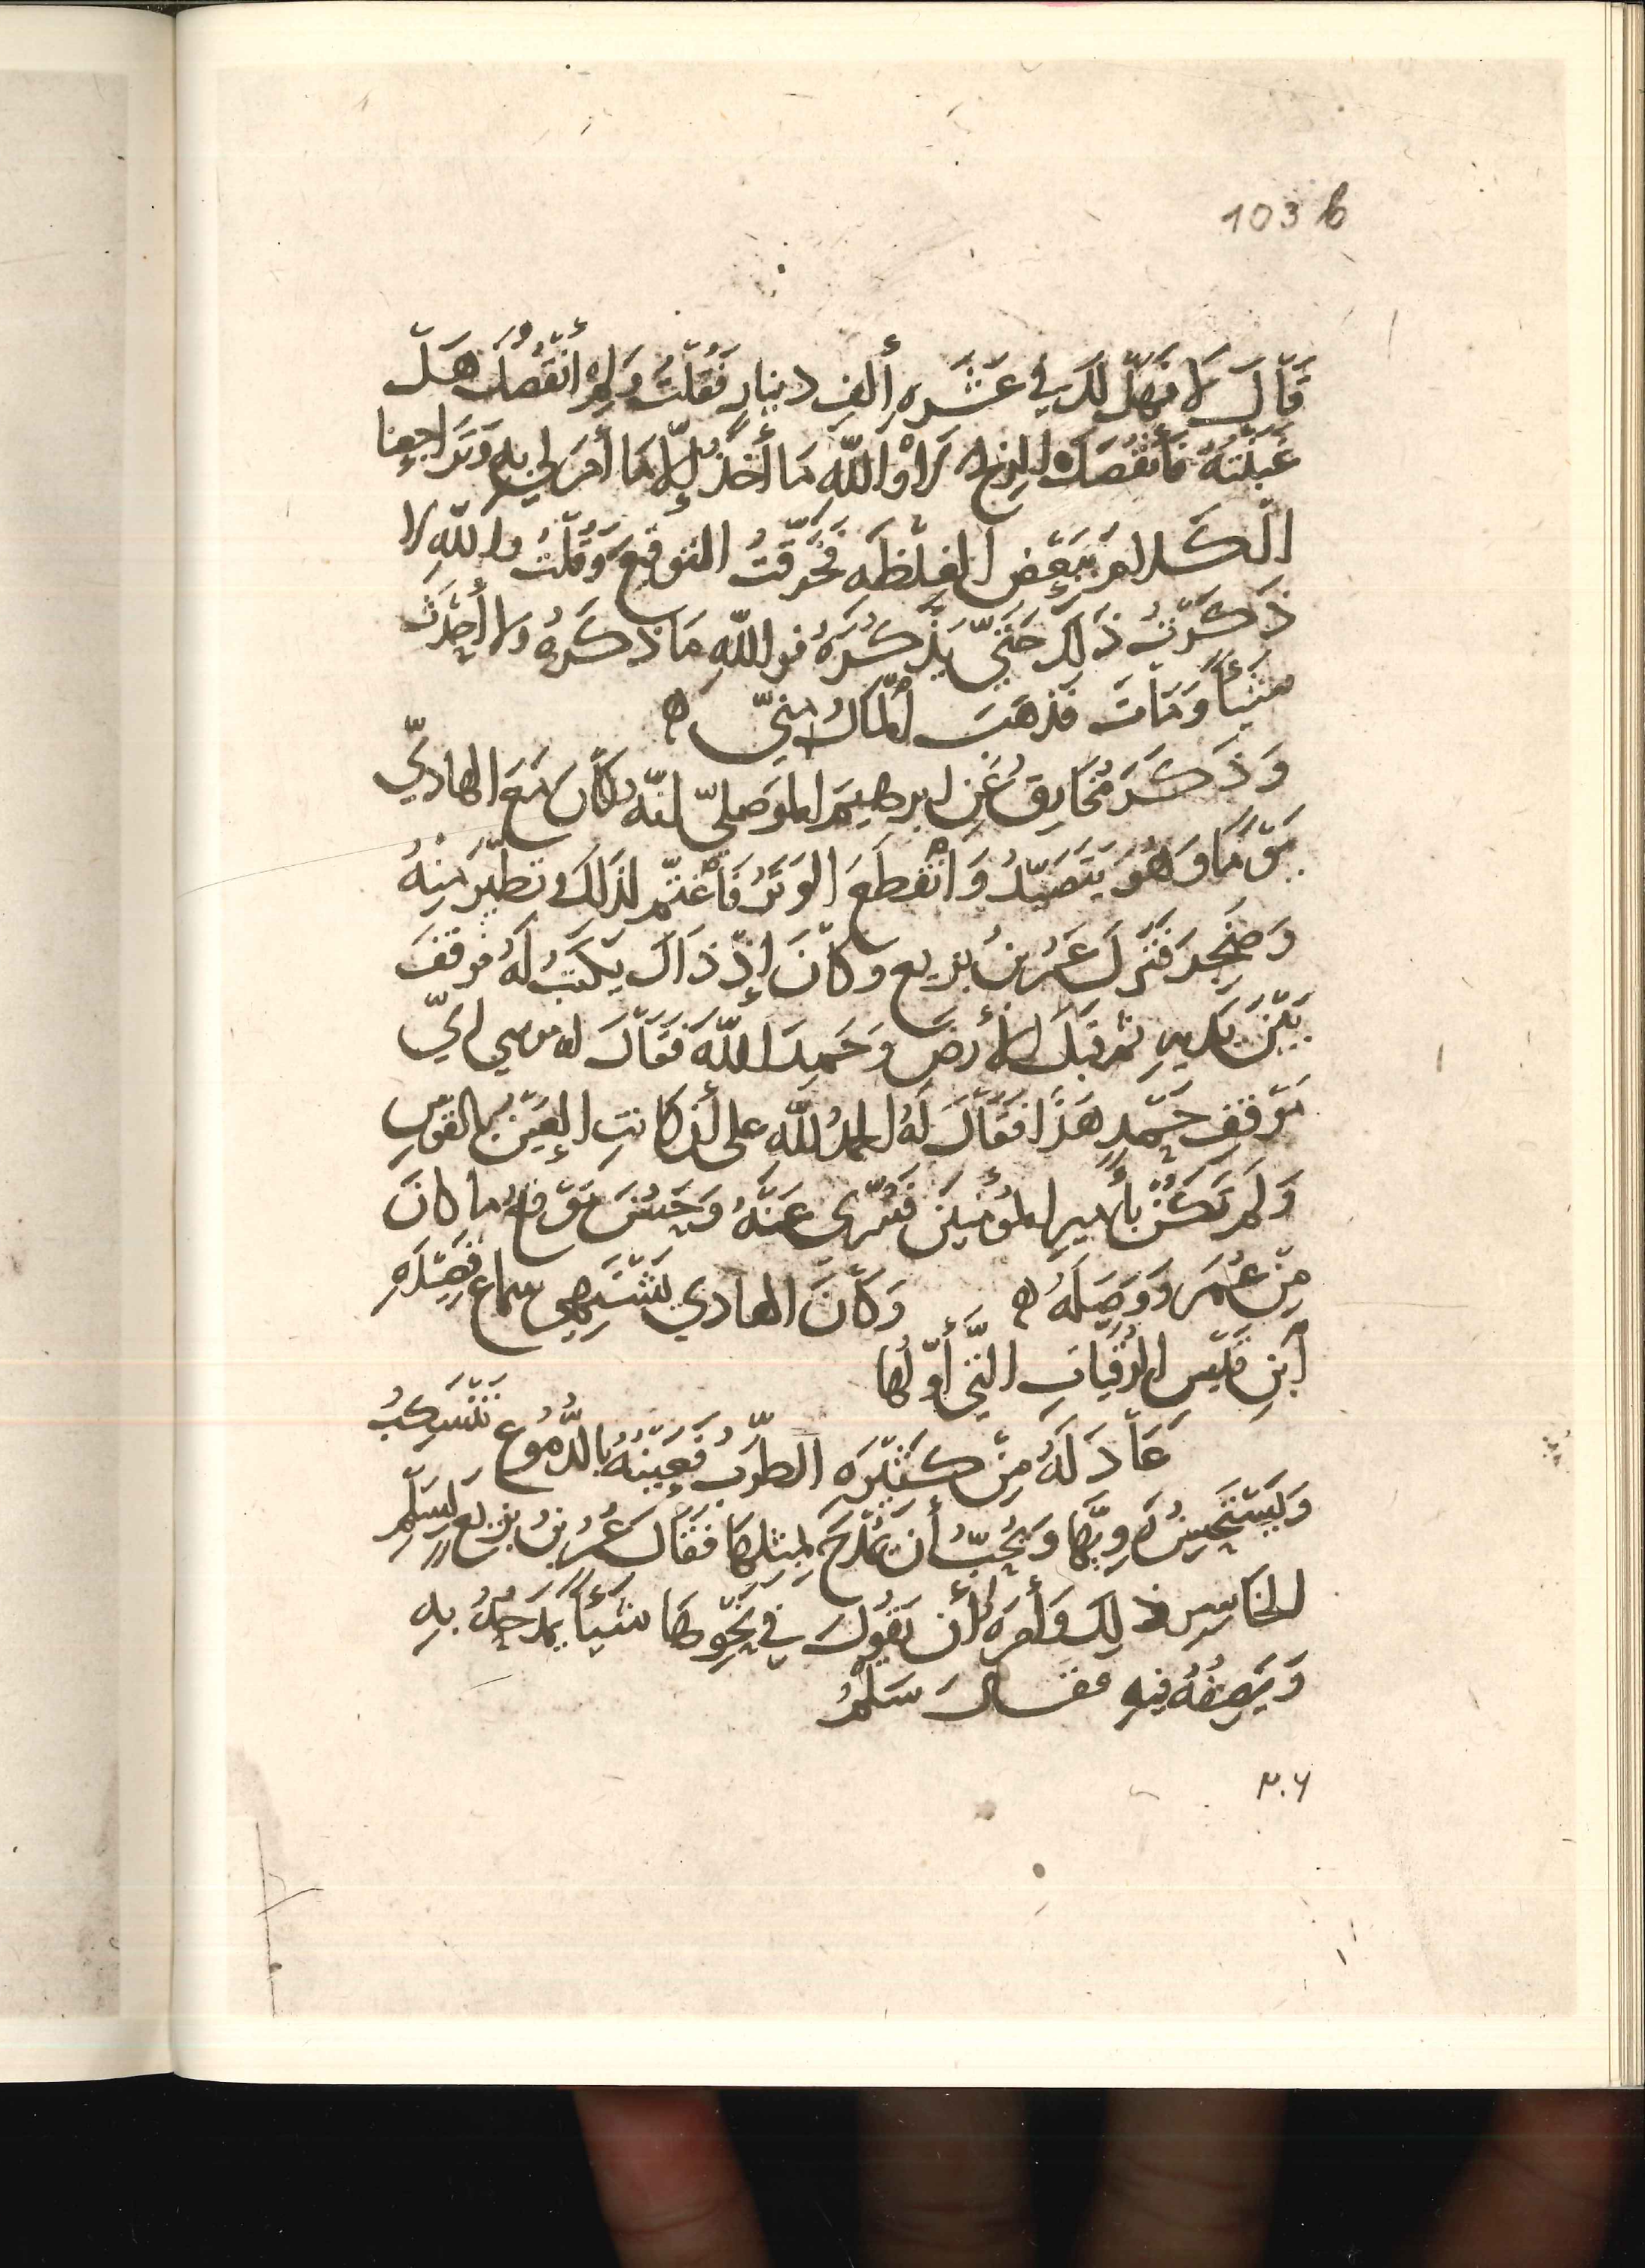 103 b
قَالَ لَا فَهَلْ لَكَ فِي عَشَرَهِ أَلفِ دينارٍ فَقُلْتُ وَلِمَ أَنْقُصُكَ هَلْ
غَبَنْتُهُ فَأَنْقُصَكَ الرِبح لَا وَاللّهِ مَا أَخَذُ إِلّا مَا أَمَرَ لي بِهِ وَتَرَاجعنا
الْكَلامَ بِبَعْضِ الغِلْظَهِ فَخَرَّقْتُ التوقيعَ وَقُلْتُ واللّهِ لا
ذَكَرْتُ ذَلِكَ حَتَّى يَذْكُرَهُ فواللّهِ مَا ذَكَرَهُ ولا أَحْدَثَ
شَيْئاً وَمَاتَ فَذهَبَ المَالُ مِنِّي ه
وَذَكَرَ مُخَارِقُ عَنِ ابرهيمَ الموَصليّ انّه كَانَ مَعَ الهاديّ
يَوْمًا وَهُوَ يَتَصَيَّدُ وَانْقطَعَ الوَتَرُ فَاغْتَمَّ لذَلِكَ وتطَيَّرَ مِنْهُ
وَضَجِرَ فَنَزَلَ عُمَرُ بنُ بزيع وكَانَ إِذْ ذَاكَ يَكْتبُ لَهُ فوقفَ
بَيْنَ يَدَيهِ ثمَ قبَّلَ الأَرضَ وَحَمِدَ اللّهَ فَقَالَ له موسي ايّ
مَوْقفِ حَمْدٍ هَذَا فَقَالَ لَهُ الحمدُ للّهِ على أن كانتِ العَيْنُ بالقوْسِ
وَلَم تَكُنْ بأَميرِ المؤْمنِينَ فَسُرِّيَ عَنْهُ وَحَسُنَ مَوْقِعُ ما كانَ
مِنْ عُمَرَ وَوَصَلَهُ ه وَكَانَ الهادي يَشْتَهِي سماع قَصِيْدَهِ
ابْنِ قَيْسِ الرُقَيّاتِ الَّتي أَوّلُها
عَادَ لَهُ مِنْ كَثِيْرَه الطَّرَبُ فَعَيْنُهُ بالدُّمُوعِ تَنْسَكِبُ
وَيَسْتَحْسِنُ رَوِيَّها وَيُحِبُّ أَن يُمْدَحَ بمثلِهَا فقَالَ عُمَرُ بنُ بزيع لِسَلْمِ
الخاسِرِ ذلِكَ وَأَمَرَهُ أَن يَقُولَ في نَحْوِهَا شَيْئاً يَمْدَحُهُ بِهِ
وَيَصِفُهُ فيهِ فقالَ سَلْمٌ
٢٠٦